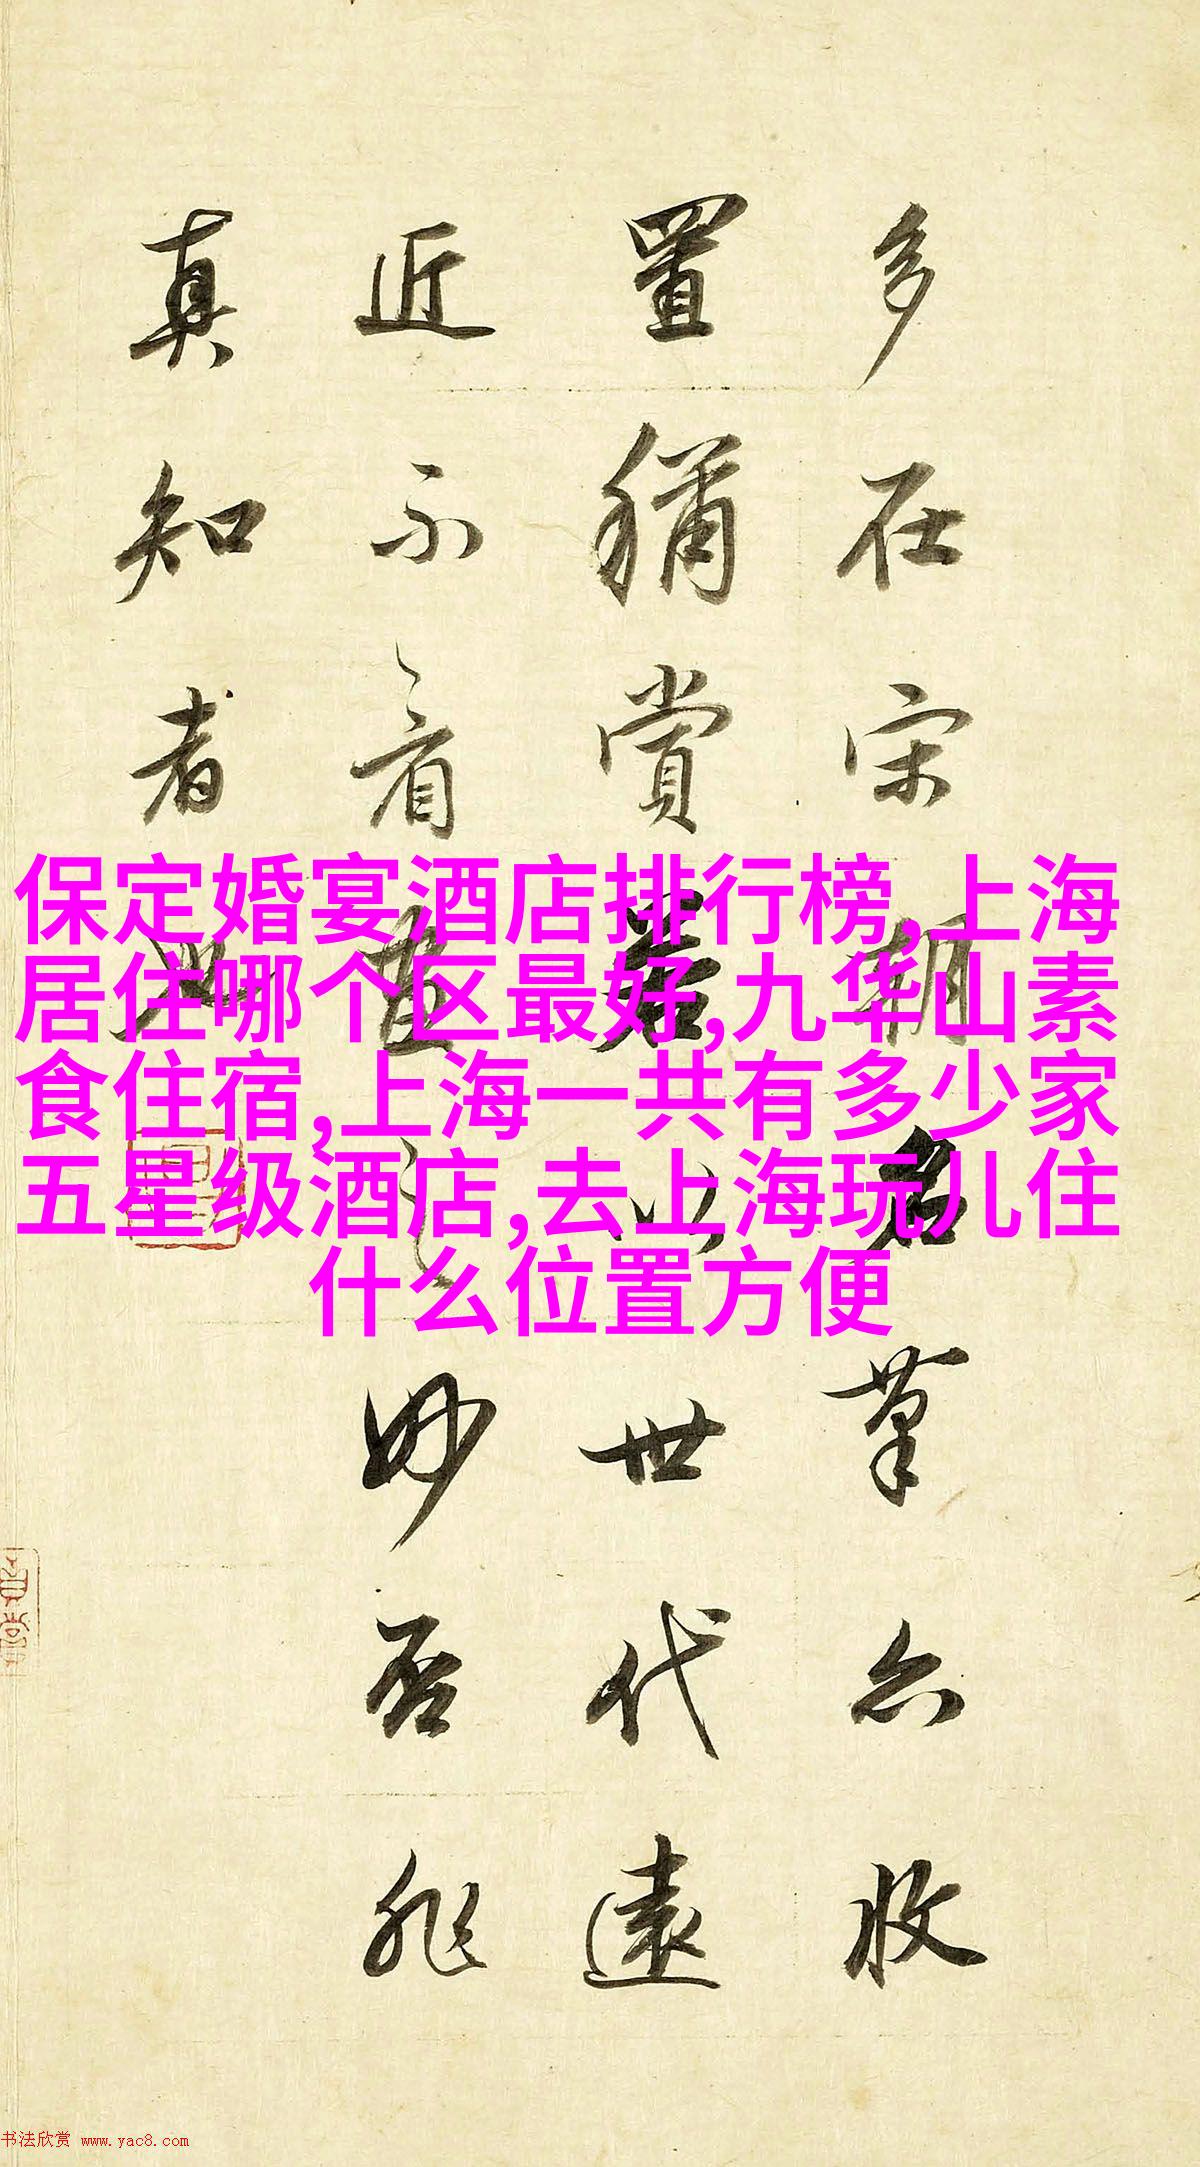 多在宋朝名筆亦收
置稱賞若以世代遠
近不看畫之妙否非
真知者也
保定婚宴酒店排行榜,上海
居住哪个区最好,九华山素
食住宿,上海一共有多少家
五星级酒店,去上海玩儿住
什么位置方便
书法欣赏 www.yac8.com